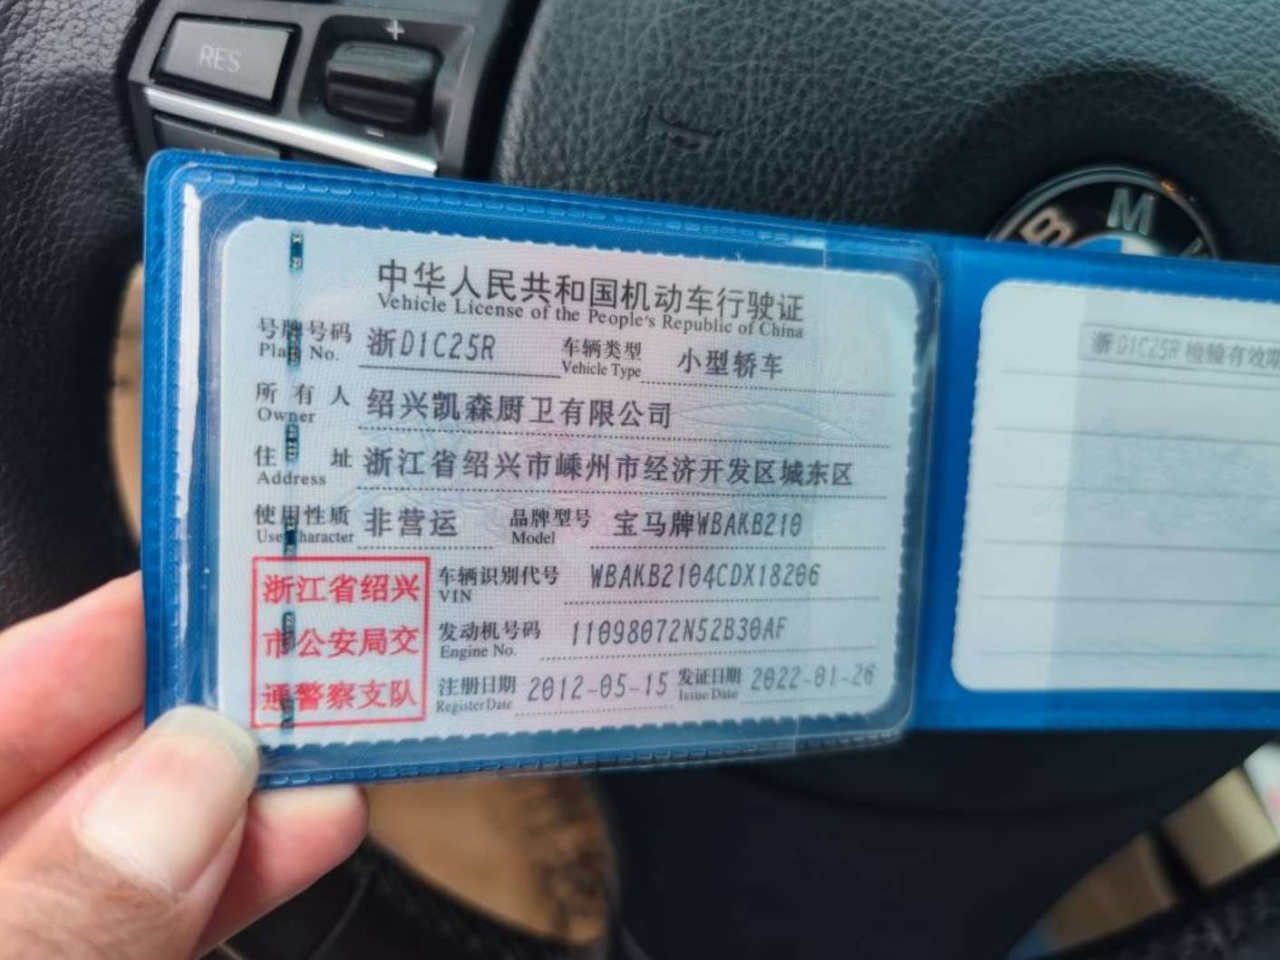 RES
+
-
B M
中华人民共和国机动车行驶证
Vehicle License of the People's Republic of China
号牌号码 浙D1C25R 车辆类型 小型轿车
Plate No. Vehicle Type
所有人 绍兴凯森厨卫有限公司
Owner
住址 浙江省绍兴市嵊州市经济开发区城东区
Address
使用性质 非营运 品牌型号 宝马牌WBAKB210
Use Character Model
浙江省绍兴
市公安局交
通警察支队
车辆识别代号 WBAKB2104CDX18206
VIN
发动机号码 11098072N52B30AF
Engine No.
注册日期 2012-05-15 发证日期 2022-01-26
Register Date Issue Date
浙D1C25R 检验有效期